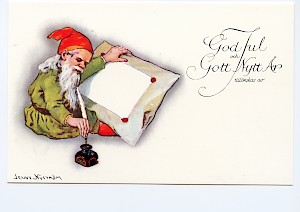 God Jul
och
Gott Nytt År
tillönskas av
JENNY NYSTRÖM